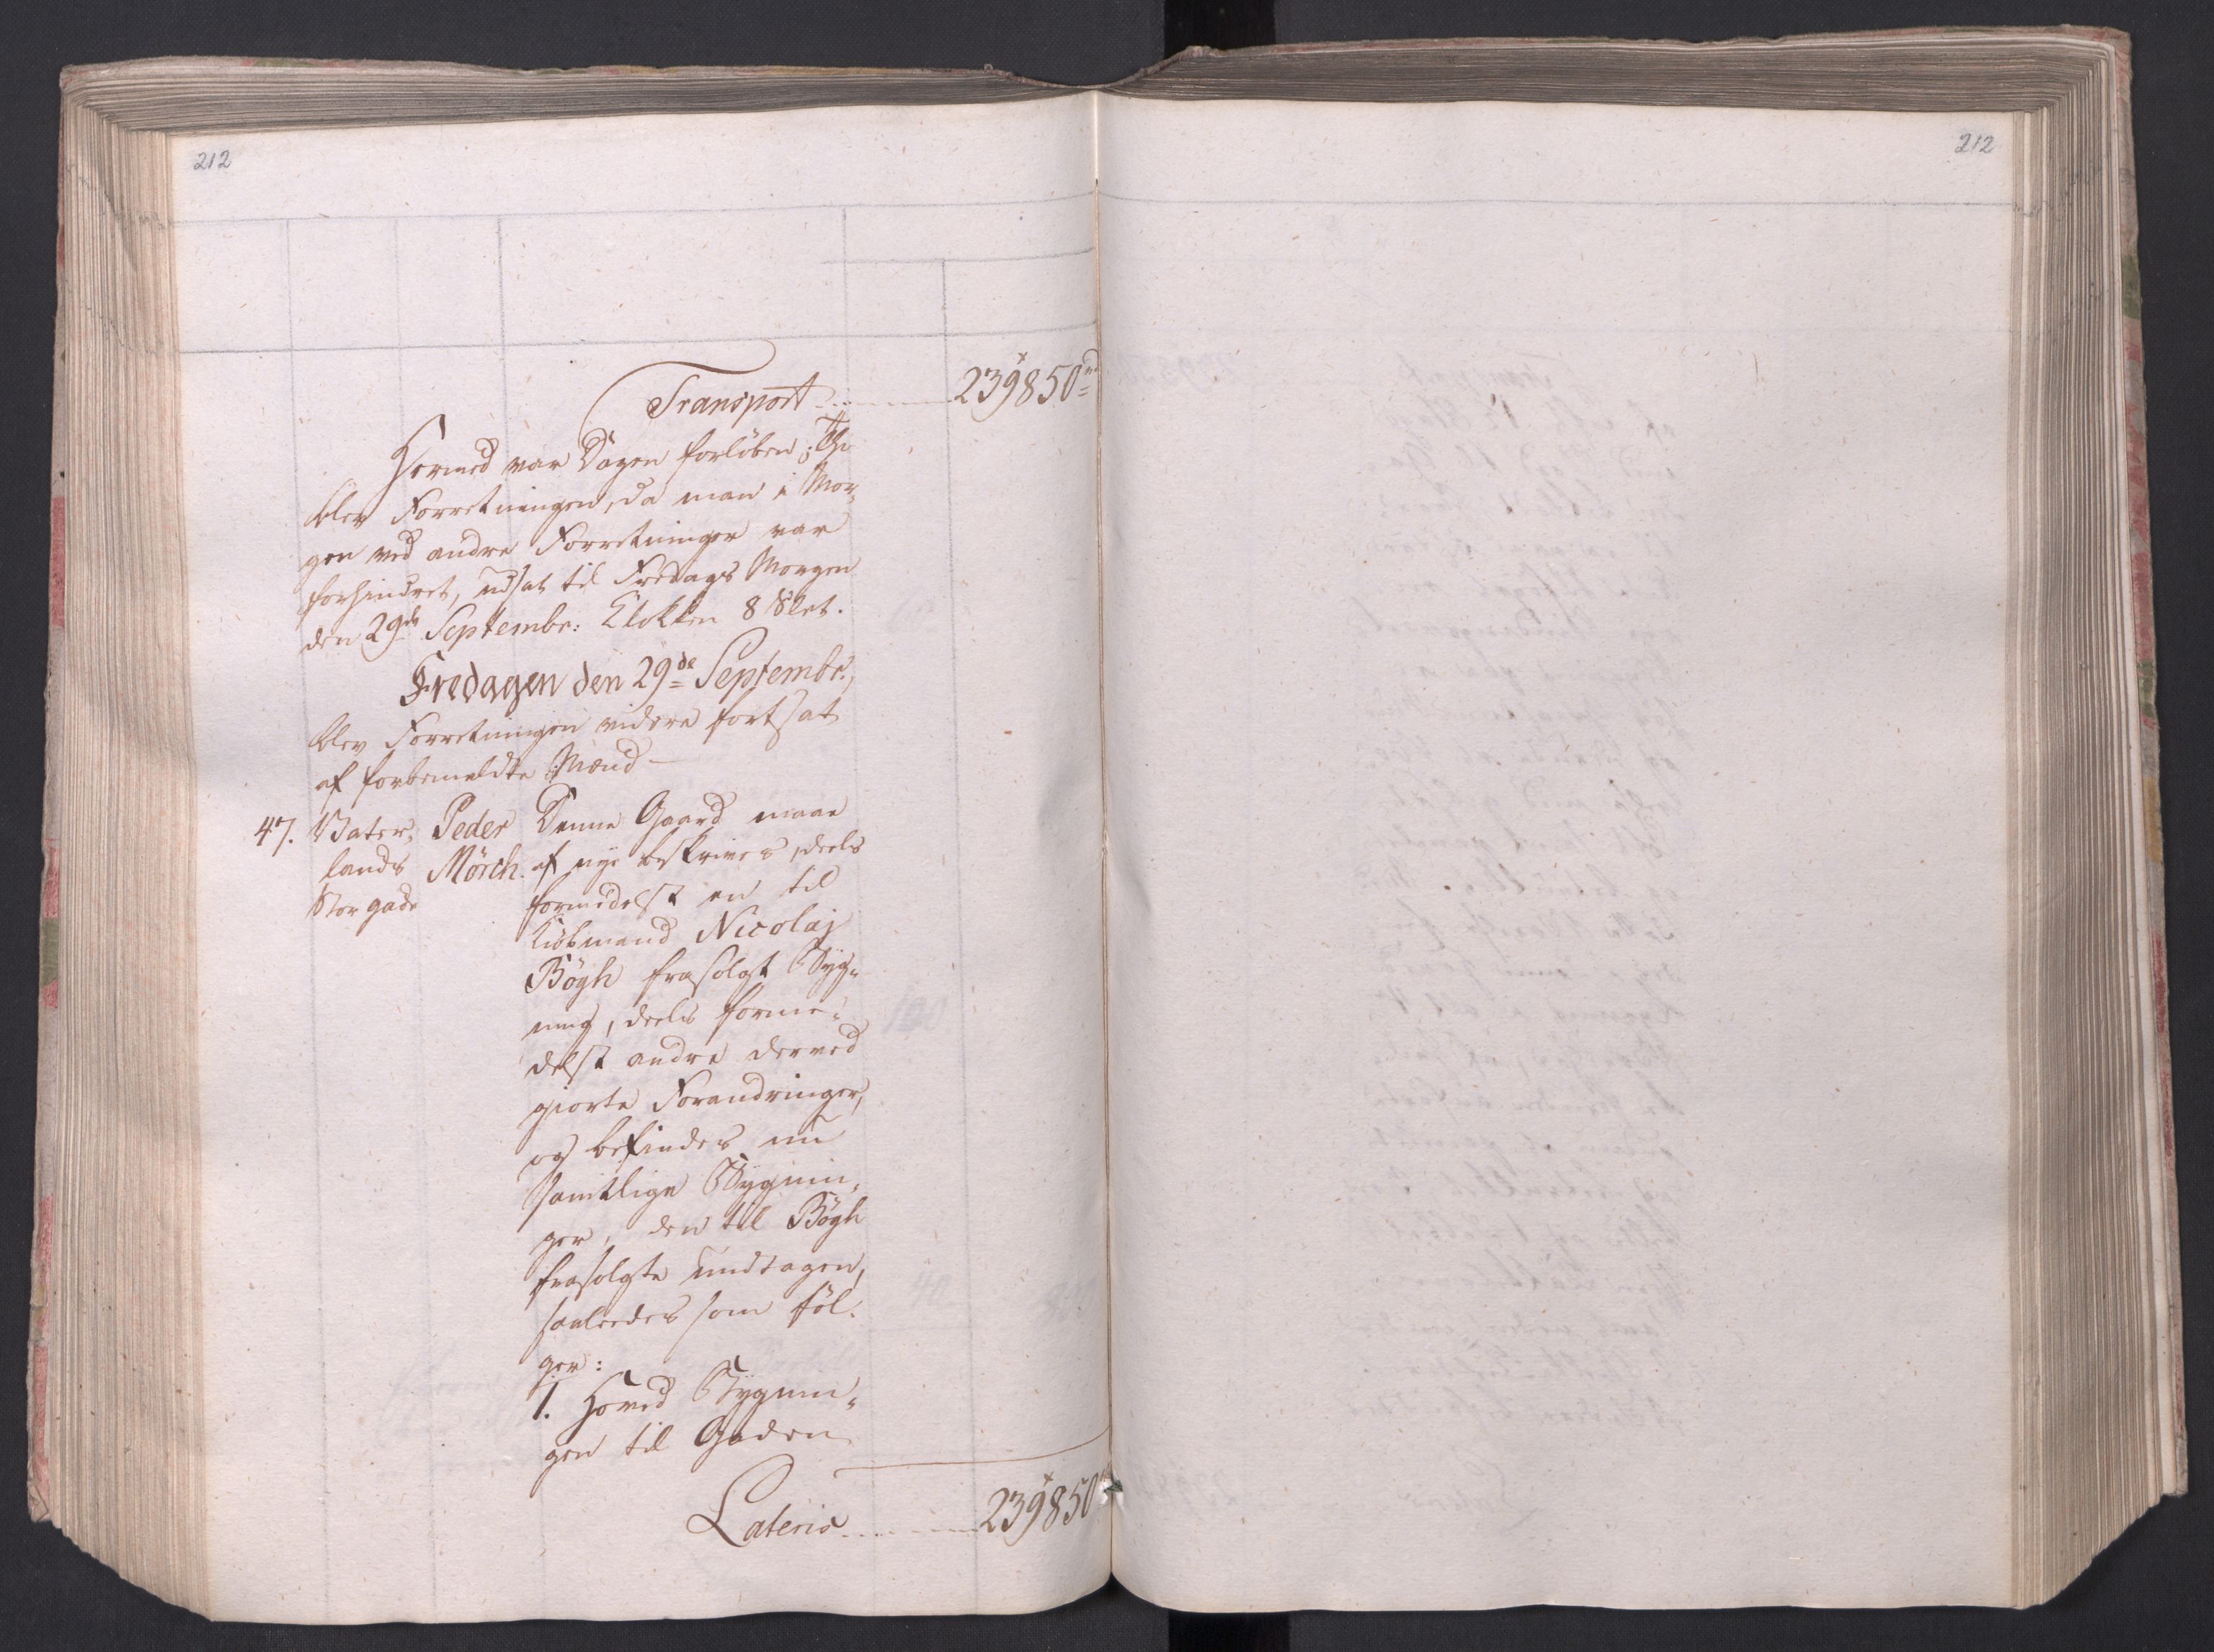 212
212
Transport ..... 239850 rd
Hermed var Dagen forløben; Thi
blev Forretningen, da man i Mor-
gen ved andre Forretninger var
forhindret, udsat til Fredags Morgen
den 29de Septembr: Klokken 8 Slet.
Fredagen den 29de Septembr.,
blev Forretningen videre fortsat
af forbemeldte Mænd —
47. Vater- Peder Denne Gaard maae
lands Mörch. af nye beskrives, deels
Storgade formedelst en til
Kiøbmand Nicolaj
Bögh frasolgt Byg-
ning, deels forme-
delst andre derved
giorte Forandringer,
og befindes nu
samtlige Bygnin-
ger, den til Bögh
frasolgte undtagen,
saaledes som föl-
ger:
1. Hoved Bygnin-
gen til Gaden
Lateris ..... 239850